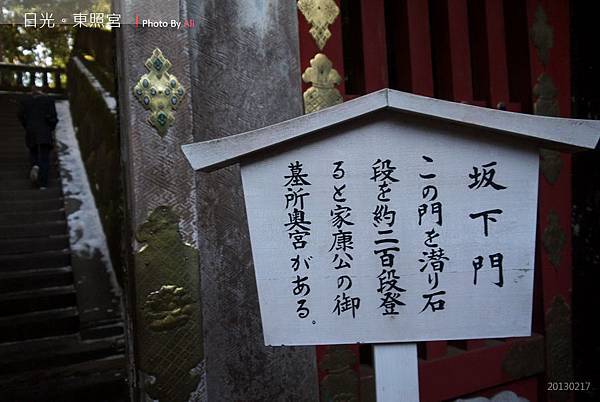 日光。東照宮 | Photo By Ali
坂下門
この門を潜り石
段を約二百段登
ると家康公の御
墓所奥宮がある。
20130217